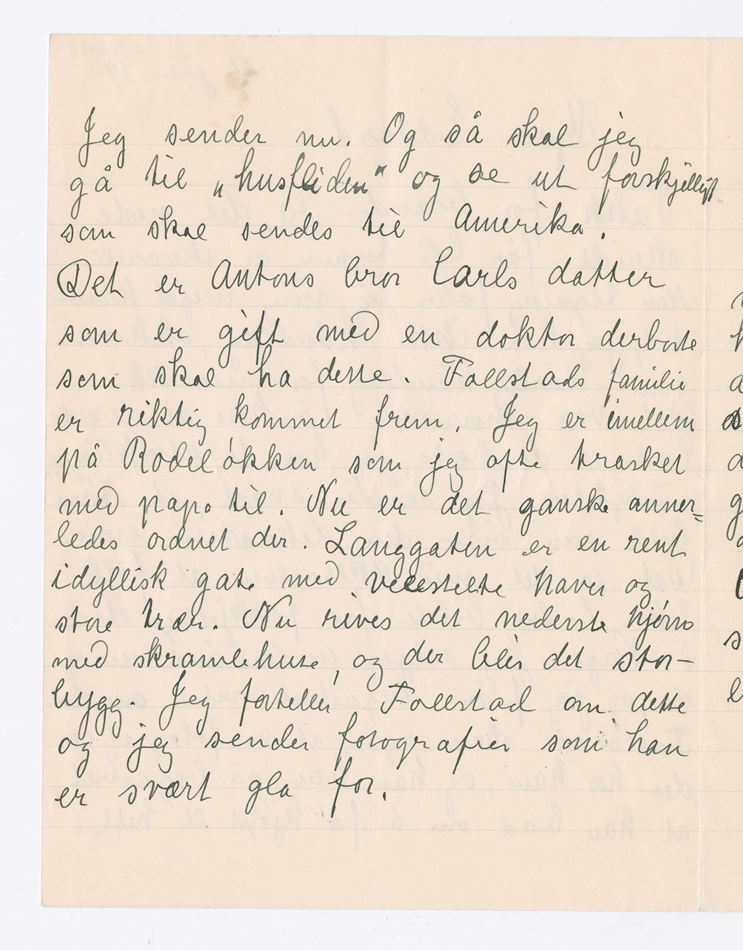 Jeg sender nu. Og så skal jeg
gå til „husfliden" og se ut forskjelligt
som skal sendes til Amerika.
Det er Antons bror Carls datter
som er gift med en doktor derborte
som skal ha dette. Follestads familie
er riktig kommet frem. Jeg er imellem
på Rodeløkken som jeg ofte trasket
med papa til. Nu er det ganske anner=
ledes ordnet der. Langgaten er en rent
idyllisk gate med velestelte haver og
store trær. Nu rives det nederste hjørne
med skramlehuse, og der blir det stor-
bygg. Jeg forteller Follestad om dette
og jeg sender fotografier som han
er svært gla for.